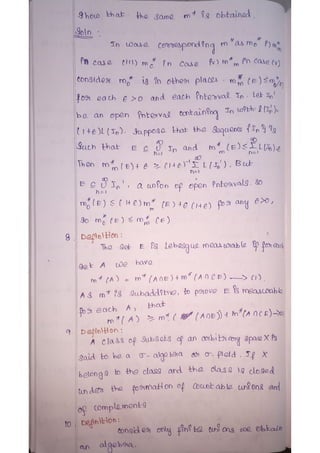 Show that the same m* is obtained.
Soln :
In case corresponding m* as m₀* i) m*
in case (ii) m₀* in case iv) m*m in case (v)
consider m₀* is in other places m*m (E) ≤ m₀*
for each ϵ > 0 and each interval In. let In'
be an open interval containing In with l(In')
(1+ϵ) l(In). Suppose that the sequence {In} is
Such that E ⊆ ∞∪n=1 In and m*m(E) ≤ ∞Σn=1 L(In)
Then m*m(E)+ϵ ≥ (1+ϵ)⁻¹ ∞Σn=1 L(In'). But
E ⊆ ∞∪n=1 In', a union of open intervals. So
m₀*(E) ≤ (1+ϵ) m*m (E) + ϵ(1+ϵ) for any ϵ>0,
So m₀*(E) ≤ m*m (E).
8 Definition:
The set E is Lebesgue measurable if for each
set A we have
m*(A) = m*(A∩E) + m*(A∩CE) —> (1).
As m* is subadditive, to prove E is measurable
for each A, that
m*(A) ≥ m*(A∩E) + m*(A∩CE)
9 Definition:
A class of subsets of an arbitrary space X is
said to be a σ-algebra or σ-field. If X
belongs to the class and the class is closed
under the formation of countable unions and
of complements
10. Definition:
consider only finite unions we obtain
an algebra.